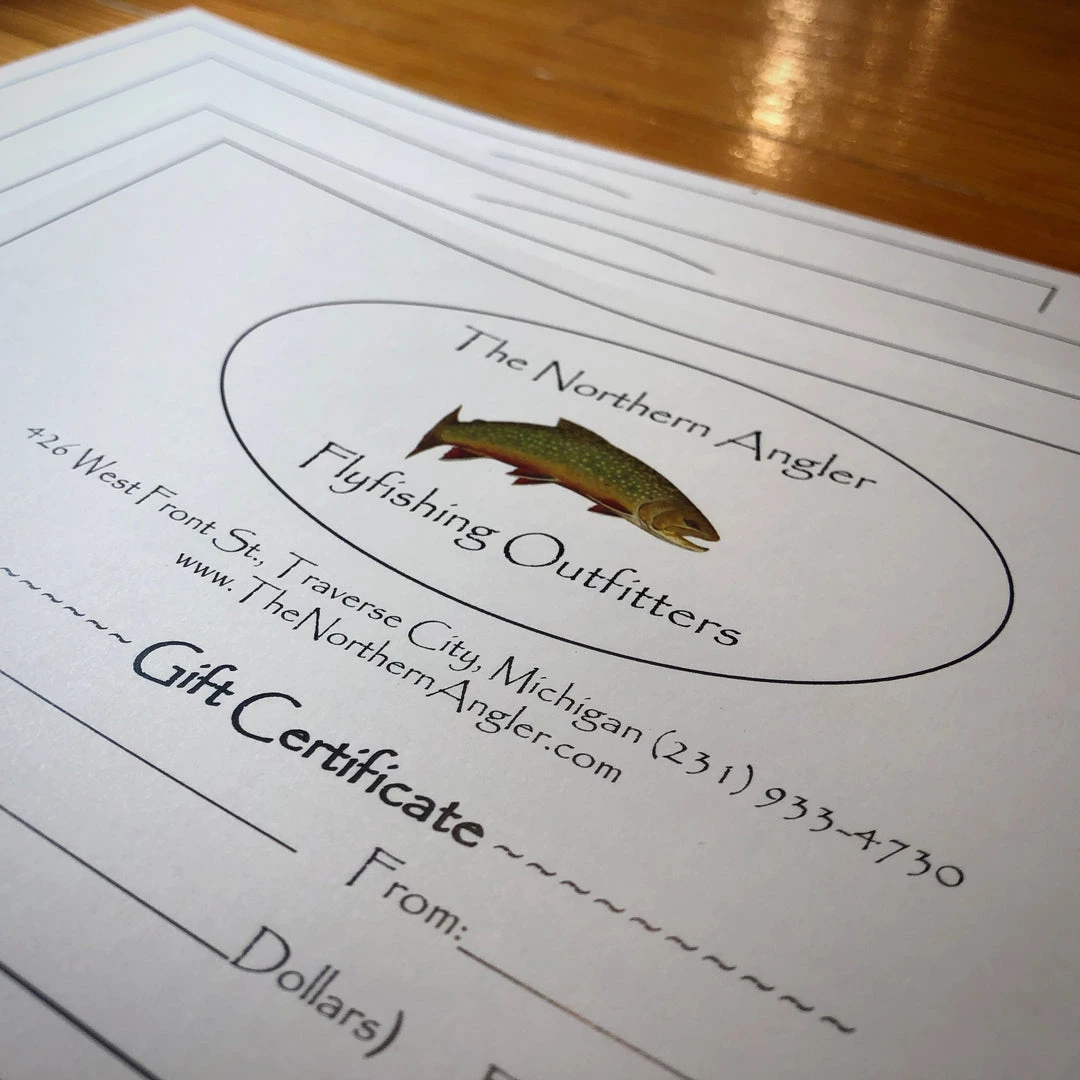 The Northern Angler
Flyfishing Outfitters
426 West Front St., Traverse City, Michigan (231) 933-4730
www.TheNorthernAngler.com
~~~~~~~ Gift Certificate ~~~~~~~~~~~~
From:
Dollars)